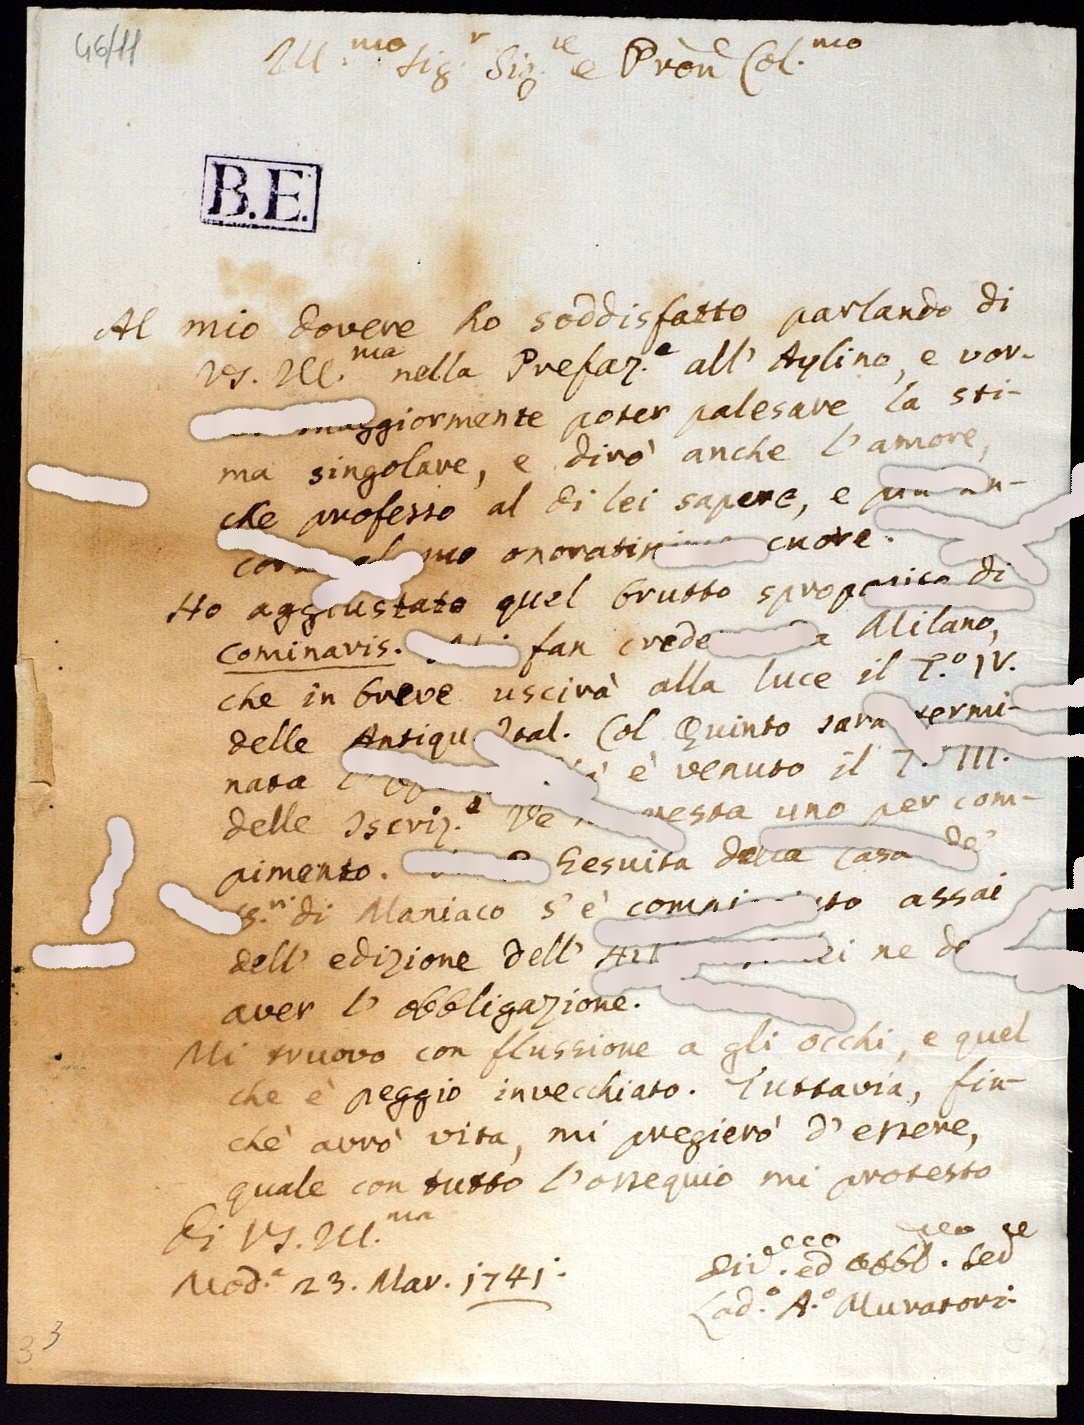 46/11
Ill.mo Sig.r Sig.re e Pron Col.mo
B.E.
Al mio dovere ho soddisfatto parlando di
VS. Ill.ma nella Prefaz.e all' Aylino, e vor-
maggiormente poter palesare la sti-
ma singolare, e dirò anche l'amore,
che professo al di lei sapere, e
onoratis cuore.
Ho aggiustato quel brutto sproposito di
cominavis. fan Milano,
che in breve uscirà alla luce il T.o IV.
delle Antiqu. Ital. Col Quinto sarà termi-
nata è venuto il T. III.
delle Iscriz.e resta uno per com-
pimento. Gesuita della Casa de'
di Maniaco s'è assai
dell' edizione dell' ne
aver l' obbligazione.
Mi truovo con flussione a gli occhi, e quel
che è peggio invecchiato. Tuttavia, fin-
chè avrò vita, mi pregierò d'essere,
quale con tutto l'ossequio mi protesto
Di VS. Ill.ma
Mod.a 23. Mar. 1741.
ed obbl.
Lod.o A.o Muratori
33